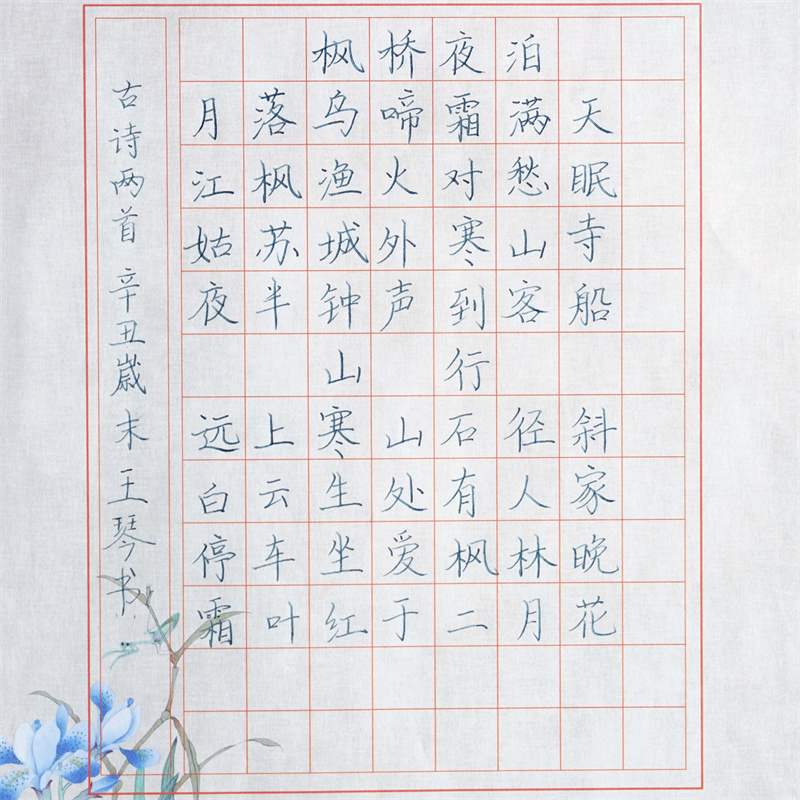 枫桥夜泊
月落乌啼霜满天
江枫渔火对愁眠
姑苏城外寒山寺
夜半钟声到客船
山行
远上寒山石径斜
白云生处有人家
停车坐爱枫林晚
霜叶红于二月花
古诗两首 辛丑歲末 王琴书